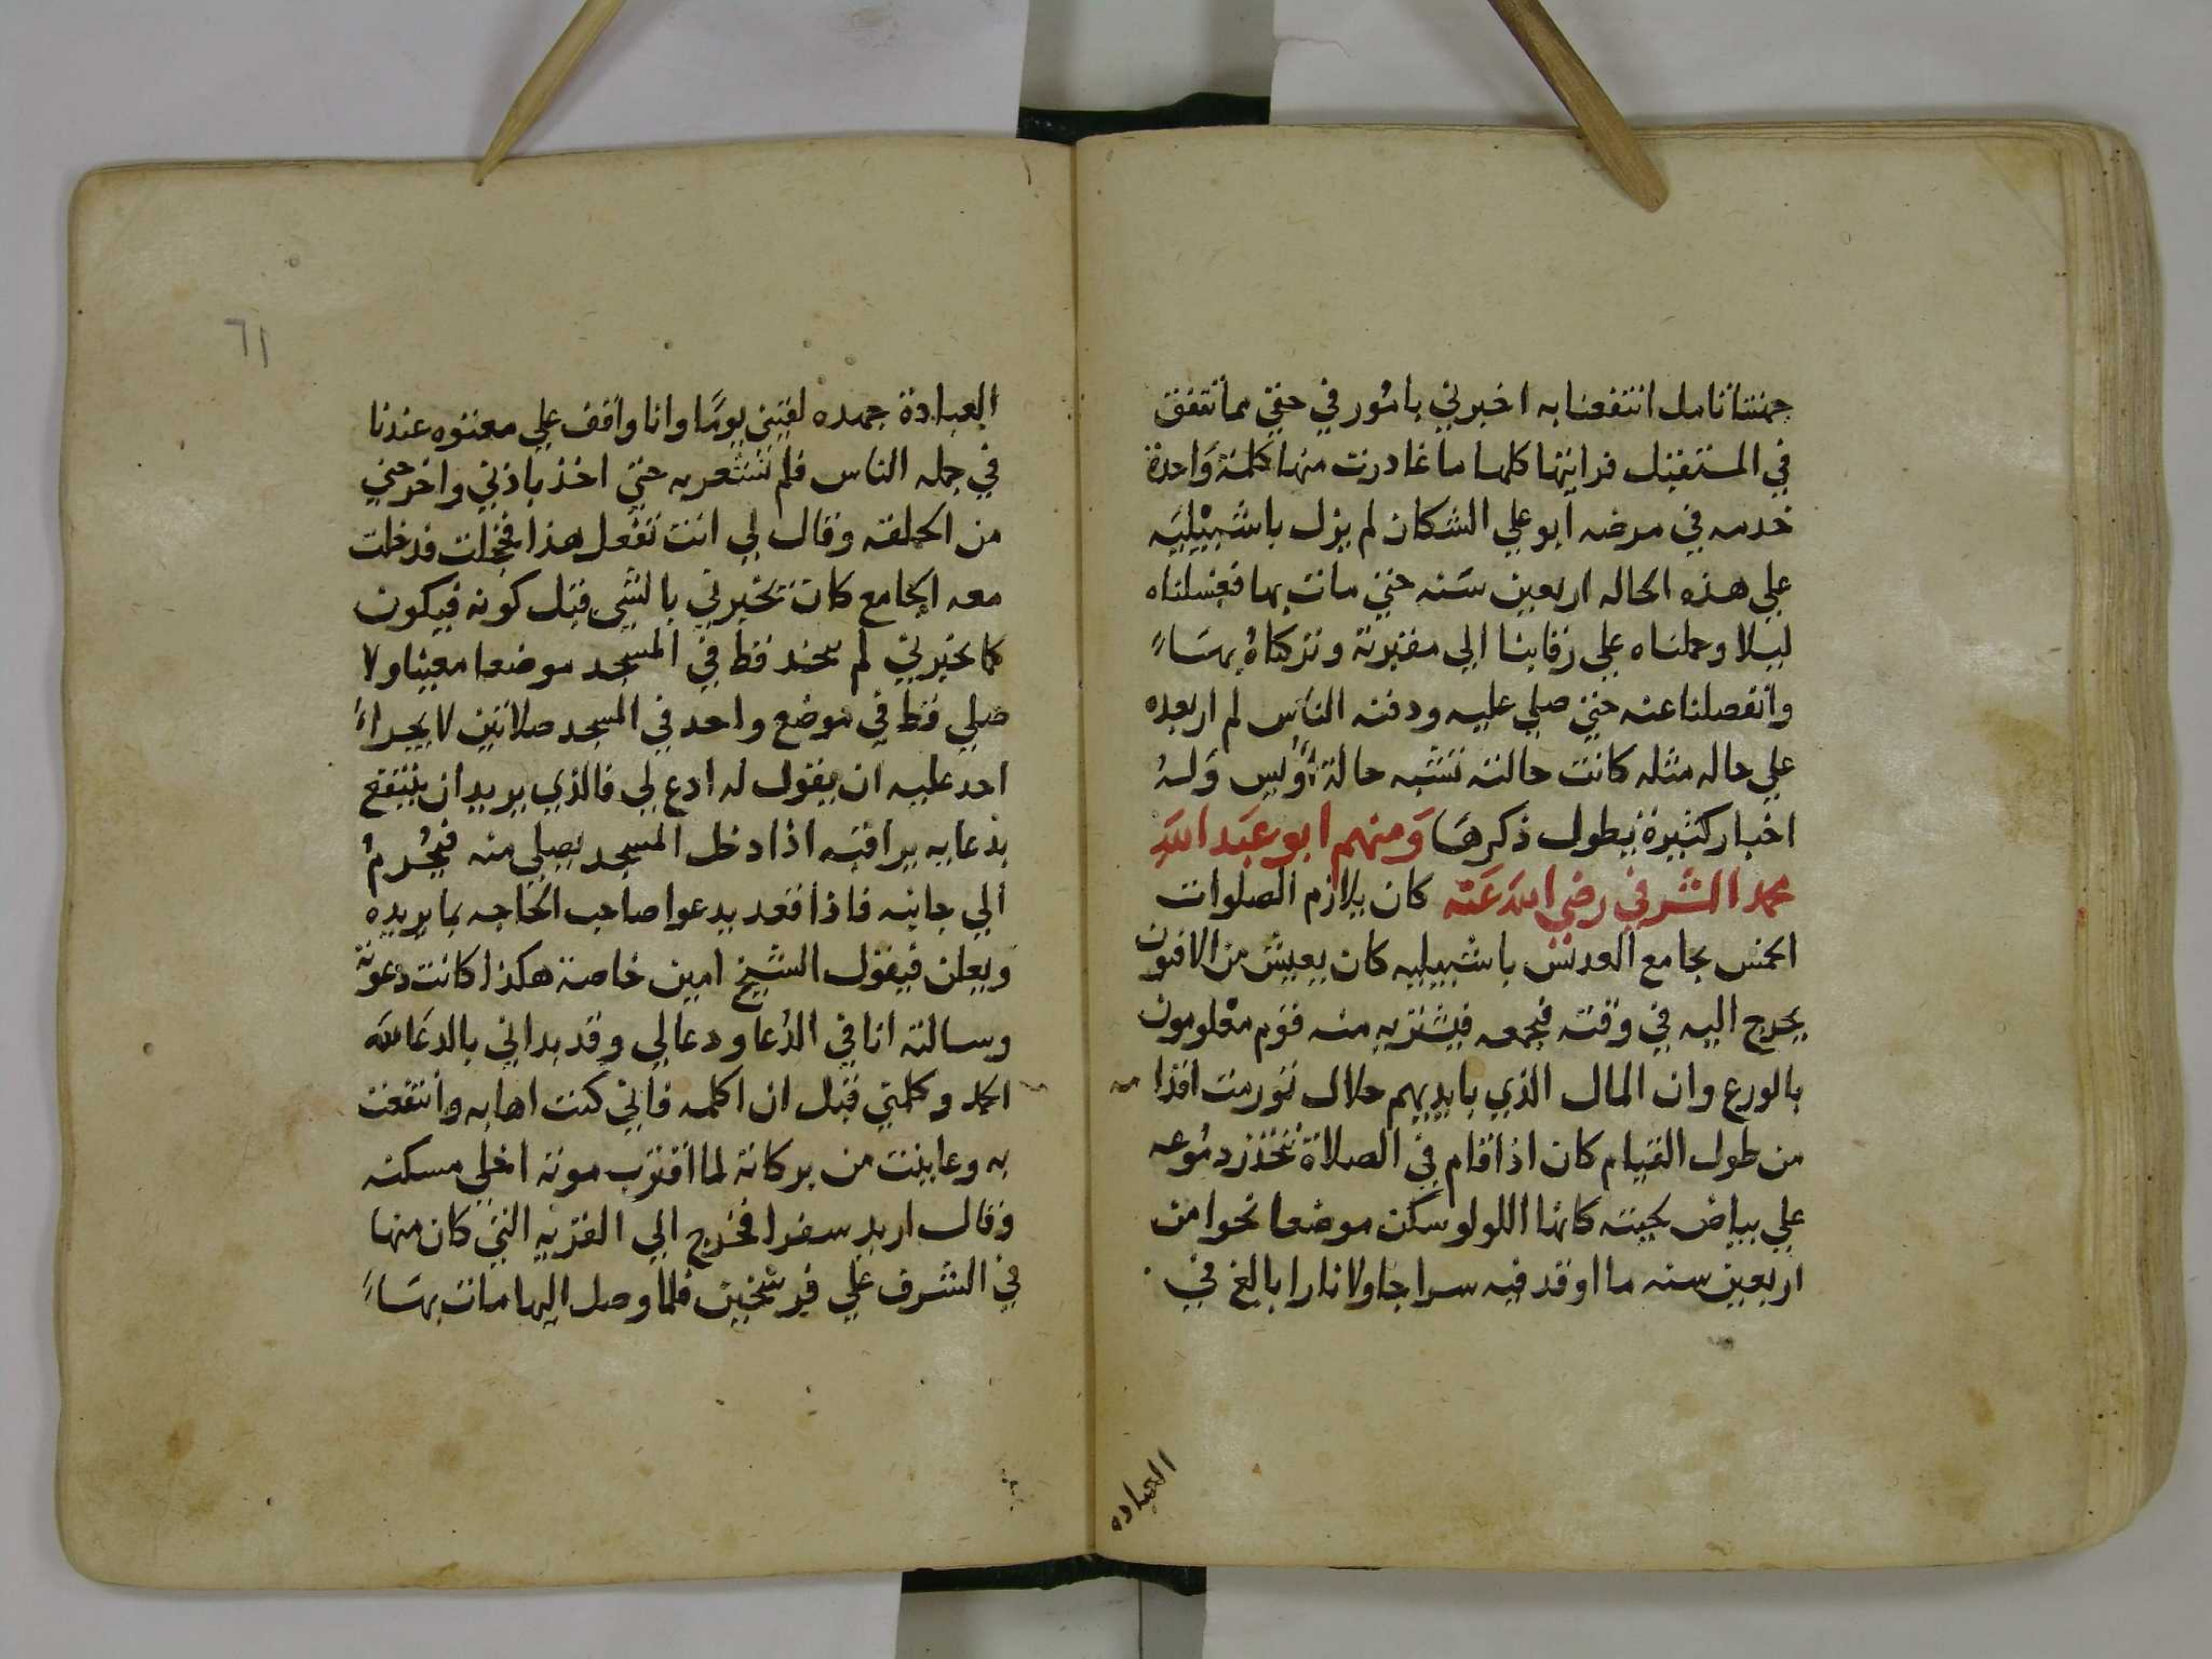 جهتنا نامل انتفعنا به اخبرني بامُور في حقي مما تتفق
في المستقبل فرايتها كلها ما غادرت منها كلمة وَاحدة
خدمه في مرضه ابو علي الشكان لم يزل باشبيْليَه
علي هذه الحاله اربعين سَنه حتي مات بها فغسلناه
ليلا وحملناه علي رقابنا الي مقبرته وتركناهُ بهسَاءً
وانفصلنا عنه حتي صلي عليه ودفنه الناس لم ار بعده
علي حاله مثله كانت حالته تشبه حالة أُوَيس وَلهُ
اخبار كثيرة يطول ذكرهَا وَمنهم ابو عبَد اللهَ
محمد الشَّرفي رضي اللهَ عَنْه كان يلازم الصلوات
الخمس بجامع العدبس باشبيليه كان يعيش من الافيون
يخرج اليه في وقته فيجمعه فيشتريه منه قوم معْلومون
بالورع وان المال الذي بايديهم حلال تورمت اقدا مه
من طول القيام كان اذا قام في الصلاة تتحدر دمُوعه
علي بياض لحيته كانها اللولو سكن موضعا نحوا من
اربعين سنه ما اوقد فيه سراجا ولا نارا بالغ في
العباده
٦١
العبادة جهده لقيني يومًا وانا واقف علي معتوه عندنا
في جمله الناس فلم نشعر به حتي اخذ باذني واخرجني
من الحلقه وقال لي انت تفعل هذا فخجلت فدخلت
معه الجامع كان تخبرني بالشي قبل كونه فيكون
كما يخبرني لم يتخذ قط في المسجد موضعا معينا ولا
صلي قط في موضع واحد في المسجد صلاتين لا يجراءُ
احد عليه ان يقول له ادع لي فالذي يريد ان ينتفع
بدعايه يراقبَه اذا دخل المسجد يصلي منه فيُحْرمُ
الي جانبه فاذا قعد يدعوا صاحب الحاجه بما يريده
ويعلن فيقول الشيخ امين خاصة هكذا كانت دعوته
وسالته انا في الدُعا ودعا لي وقد بداني بالدعَا لله
الحمد وكلمتي قبل ان اكلمه فاني كنت اهابه وانتفعت
به وعاينت من بركاته لما اقترب موته اخلي مسكنه
وقال اريد سفرا فخرج الي القريه التي كان منها
في الشرف علي فرسخين فلما وصل اليها مات بهسَاءً